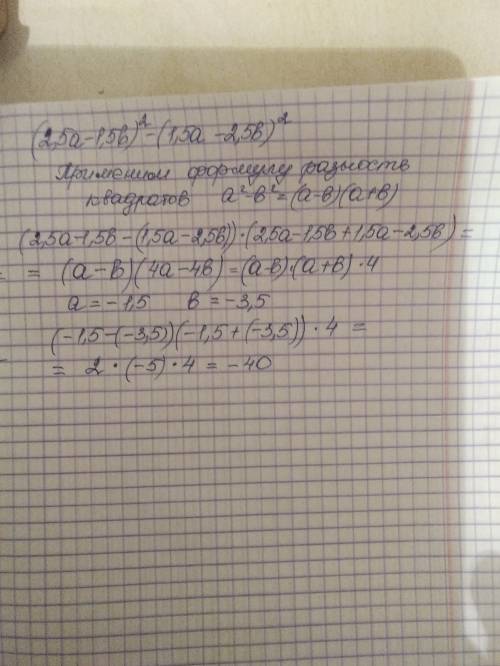 (2,5a-1,5b)²-(1,5a-2,5b)²
Применим формулу разность
квадратов a²-b²=(a-b)(a+b)
(2,5a-1,5b-(1,5a-2,5b))·(2,5a-1,5b+1,5a-2,5b)=
= (a-b)(4a-4b)=(a-b)·(a+b)·4
a=-1,5 b=-3,5
(-1,5-(-3,5))(-1,5+(-3,5))·4 =
= 2·(-5)·4 = -40